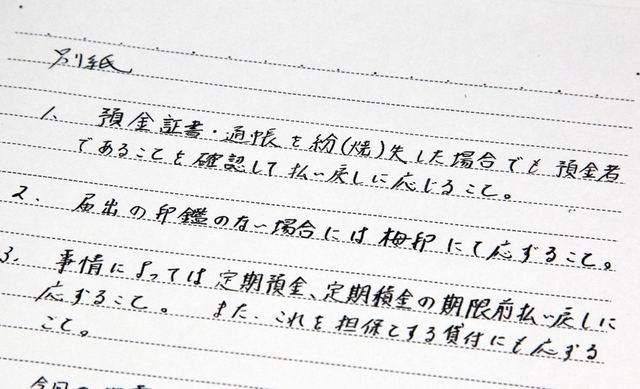 別紙
1. 預金証書・通帳を紛(焼)失した場合でも預金者
であることを確認して払い戻しに応じること。
2. 届出の印鑑のない場合には拇印にて応ずること。
3. 事情によっては定期預金、定期積金の期限前払い戻しに
応ずること。また、これを担保とする貸付にも応ずる
こと。